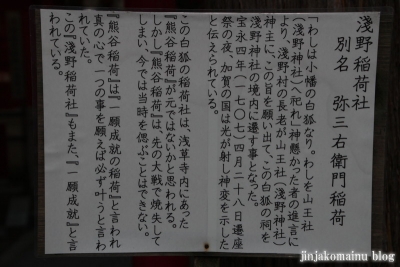 淺野稲荷社
別名 弥三右衛門稲荷
「わしは小幡の白狐なり。わしを山王社
（淺野神社）へ祀れ」神懸かった者の進言に
より、淺野村の長老が山王社（淺野神社）
神主に、この旨を願い出て、この白狐の祠を
淺野神社の境内に遷す事となった。
宝永四年（一七〇七）四月二十八日遷座
祭の夜、加賀の国は光が射し神変を示した
と伝えられている。
この白狐の稲荷社は、浅草寺内にあった
『熊谷稲荷』が元ではないかと思われる。
しかし『熊谷稲荷』は、先の大戦で焼失して
しまい、今では当時を偲ぶことはできない。
『熊谷稲荷』は『一願成就の稲荷』と言われ
真の心で一つの事を願えば必ず叶うと言わ
れていた。
この『淺野稲荷社』もまた、『一願成就』と言
われている。
jinjakomainu blog